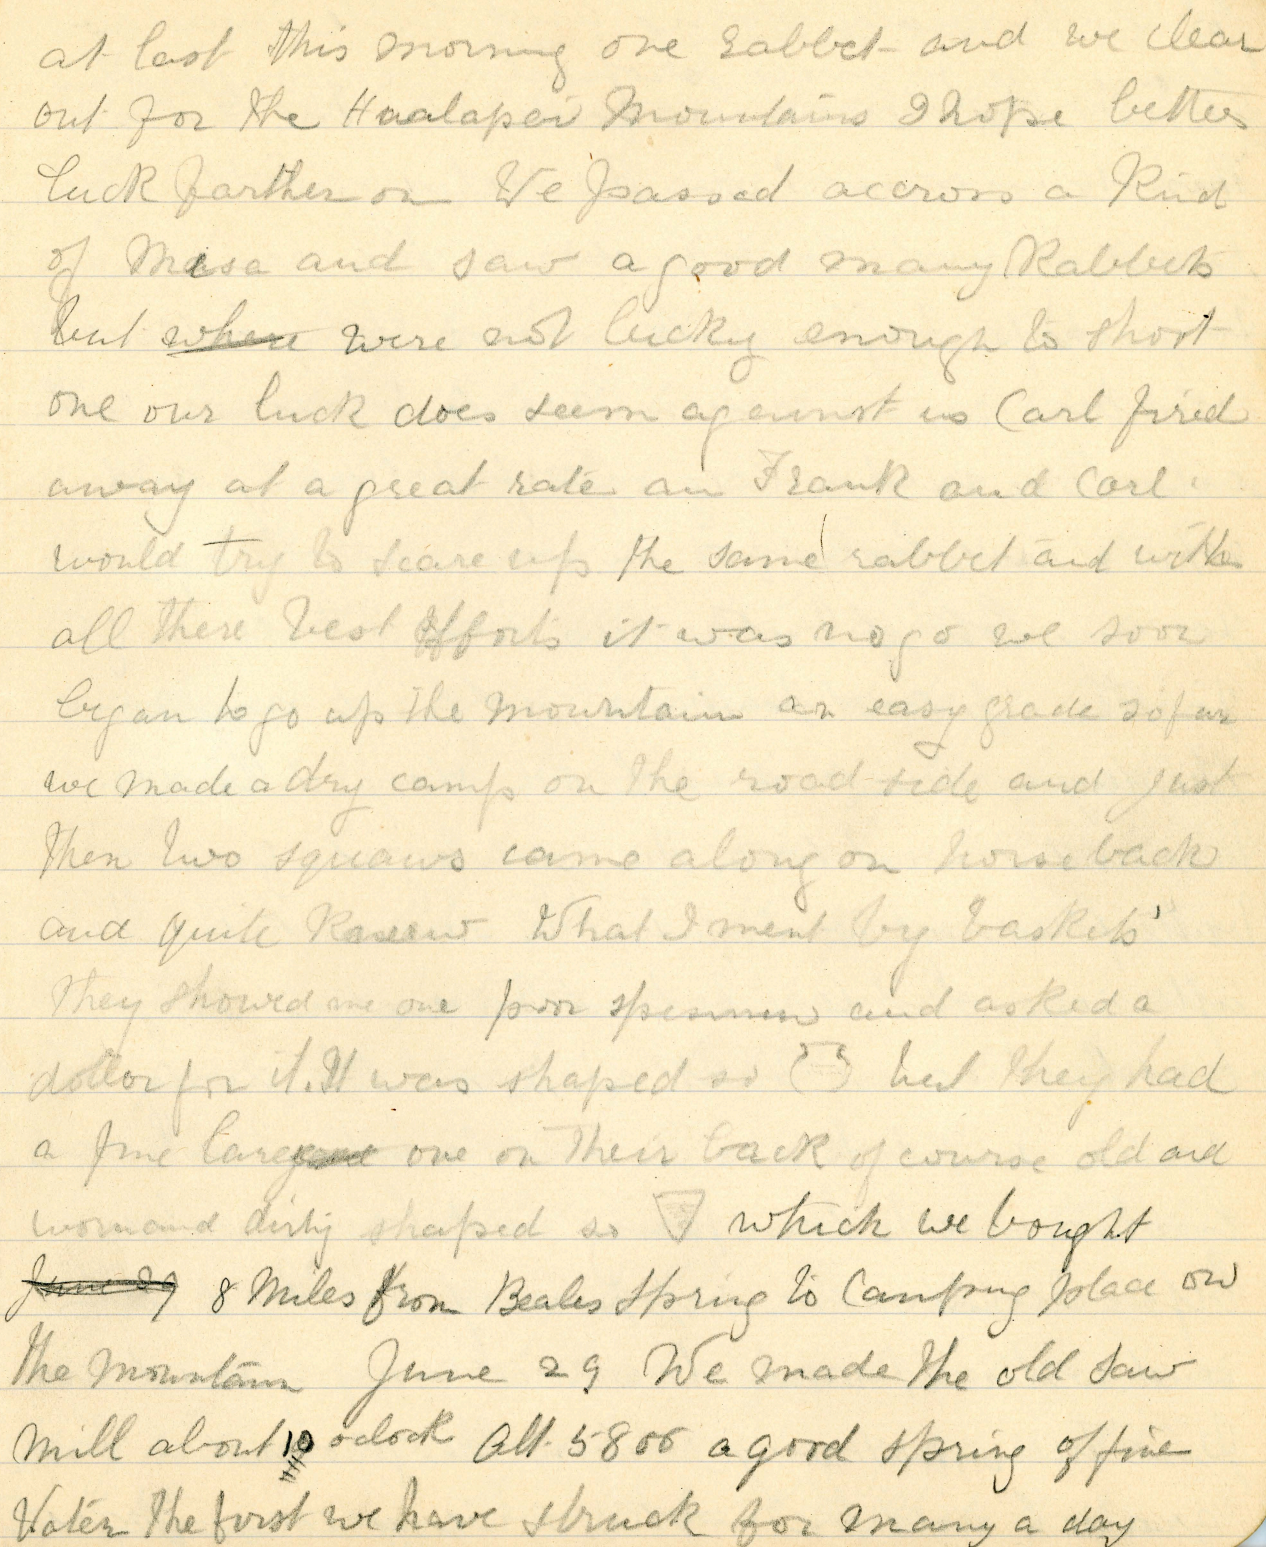 at last this morning one rabbet and we clear
out for the Hualapai Mountains I hope better
luck farther on We passed accross a Kind
of Masa and saw a good many Rabbets
but where were not lucky enough to shoot
one our luck does seem against us Carl fired
away at a great rate an Frank and Carl
would try to scare up the same rabbet and with
all there best Efforts it was no go we soon
began to go up the mountain an easy grade so far
we made a dry camp on the road side and just
then two squaws came along on horseback
and quite Knew What I ment by baskets
they showed me one poor spesimen and asked a
dollar for it. It was shaped so but they had
a fine large one on their back of course old and
worn and dirty shaped so which we bought
June 29 8 Miles from Beales Spring to Camping place on
the Mountain June 29 We made the old Saw
Mill about 10 oclock Alt. 5800 a good spring of fine
Water the first we have struck for many a day